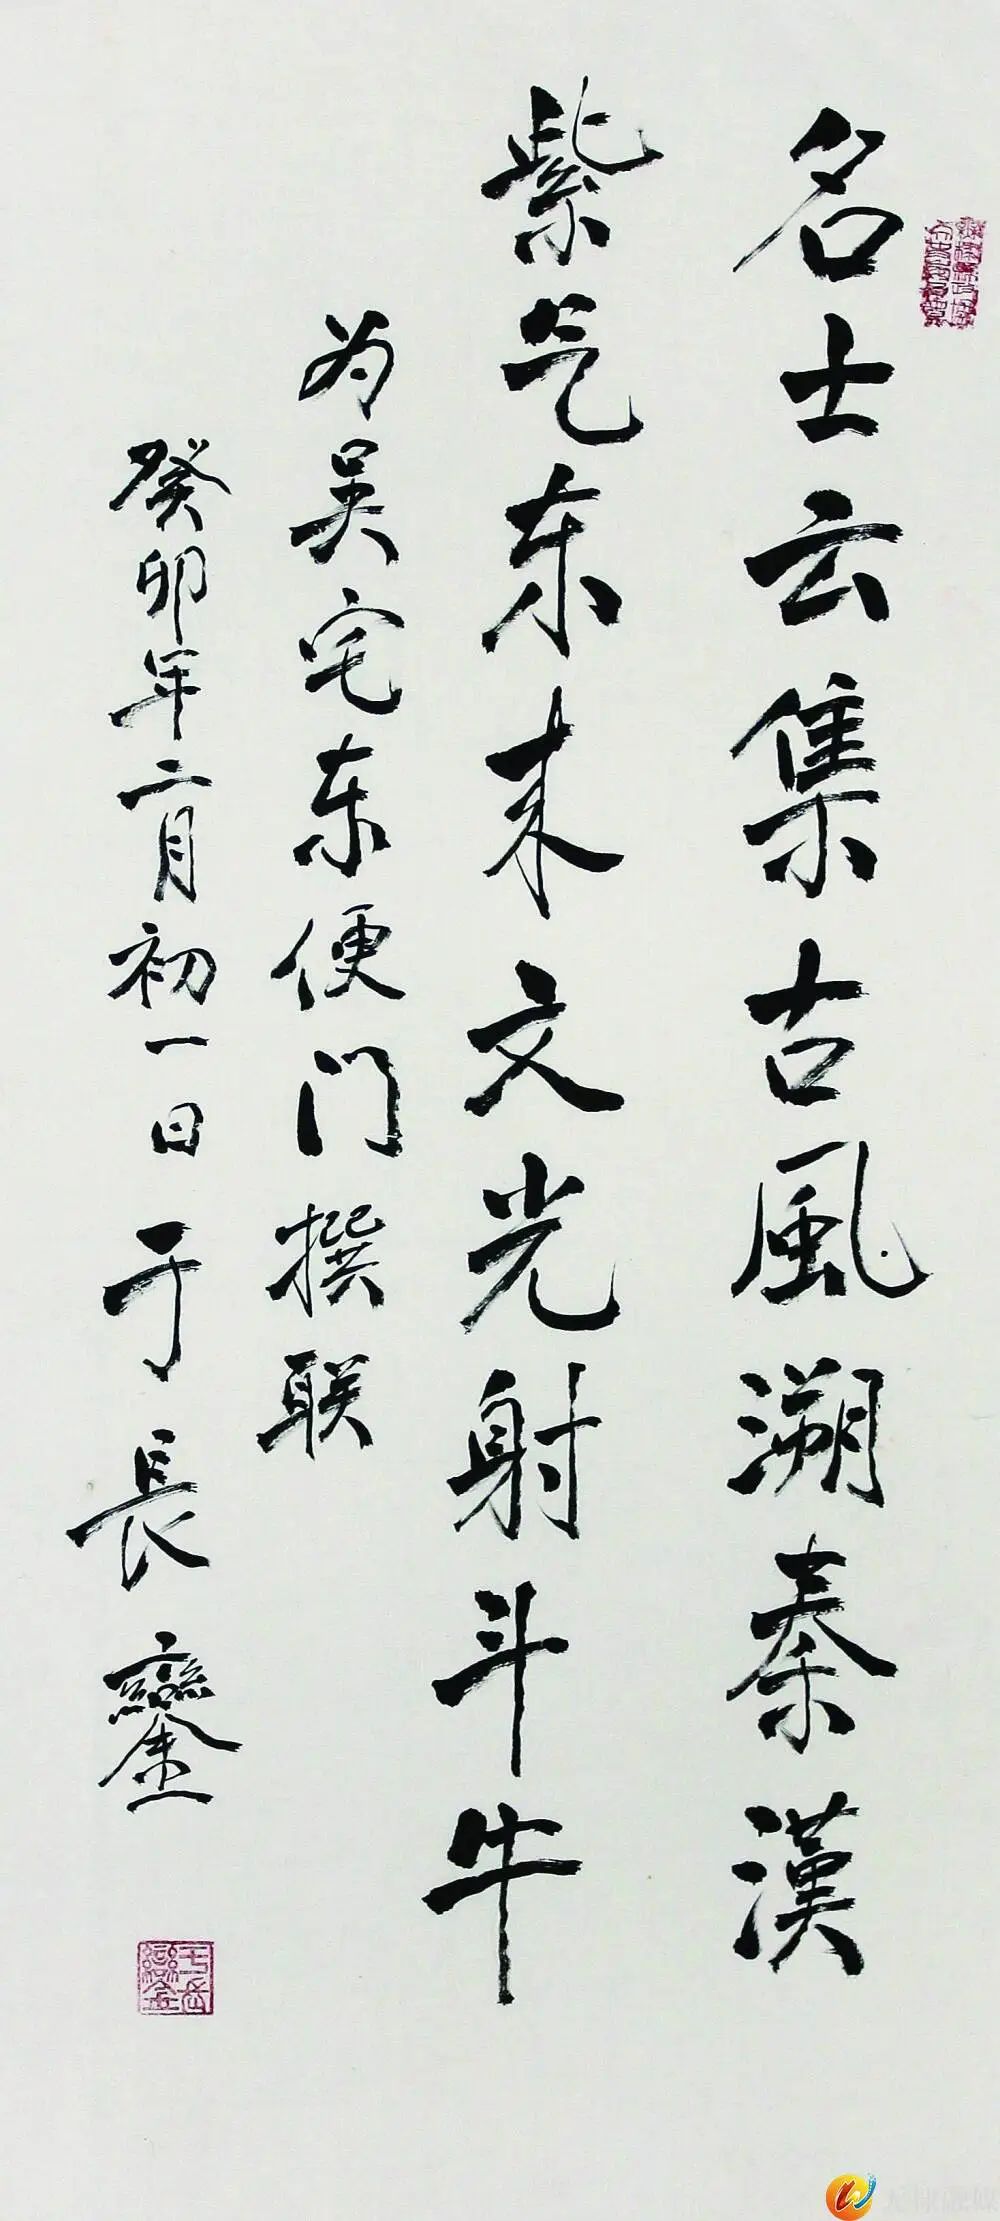 名士云集古風溯秦漢
紫气东来文光射斗牛
为吴宅东便门撰联
癸卯年二月初一日于長鑾
于長鑾